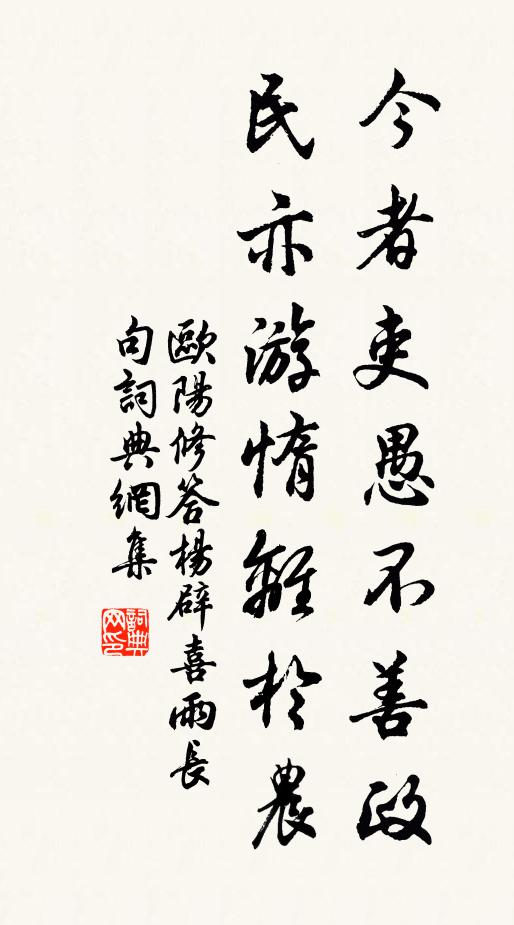 今者吏愚不善政
民亦游惰離於農
歐陽修答楊辟喜雨長
句詞典網集
詞典
网印